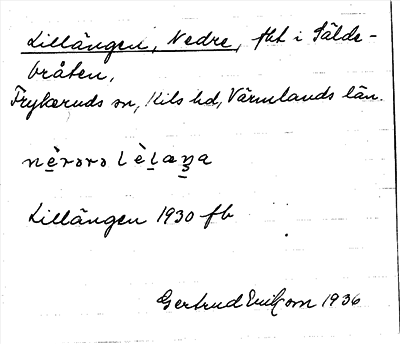 Lillängen, Nedre, fht i Sälde-
bråten,
Frykeruds sn, Kils hd, Värmlands län.
Lillängen 1930 fb
Gertrud Ericson 1936